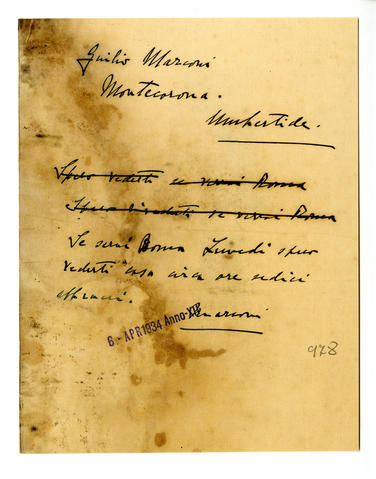 Giulio Marconi
Montecorona.
Umbertide.
Spero vederti se verrai Roma
Spero vederti se verrai Roma
Se verrai Roma Lunedì spero
vederti casa circa ore sedici
abbracci.
Gmarconi
6 - APR 1934 Anno XII
978